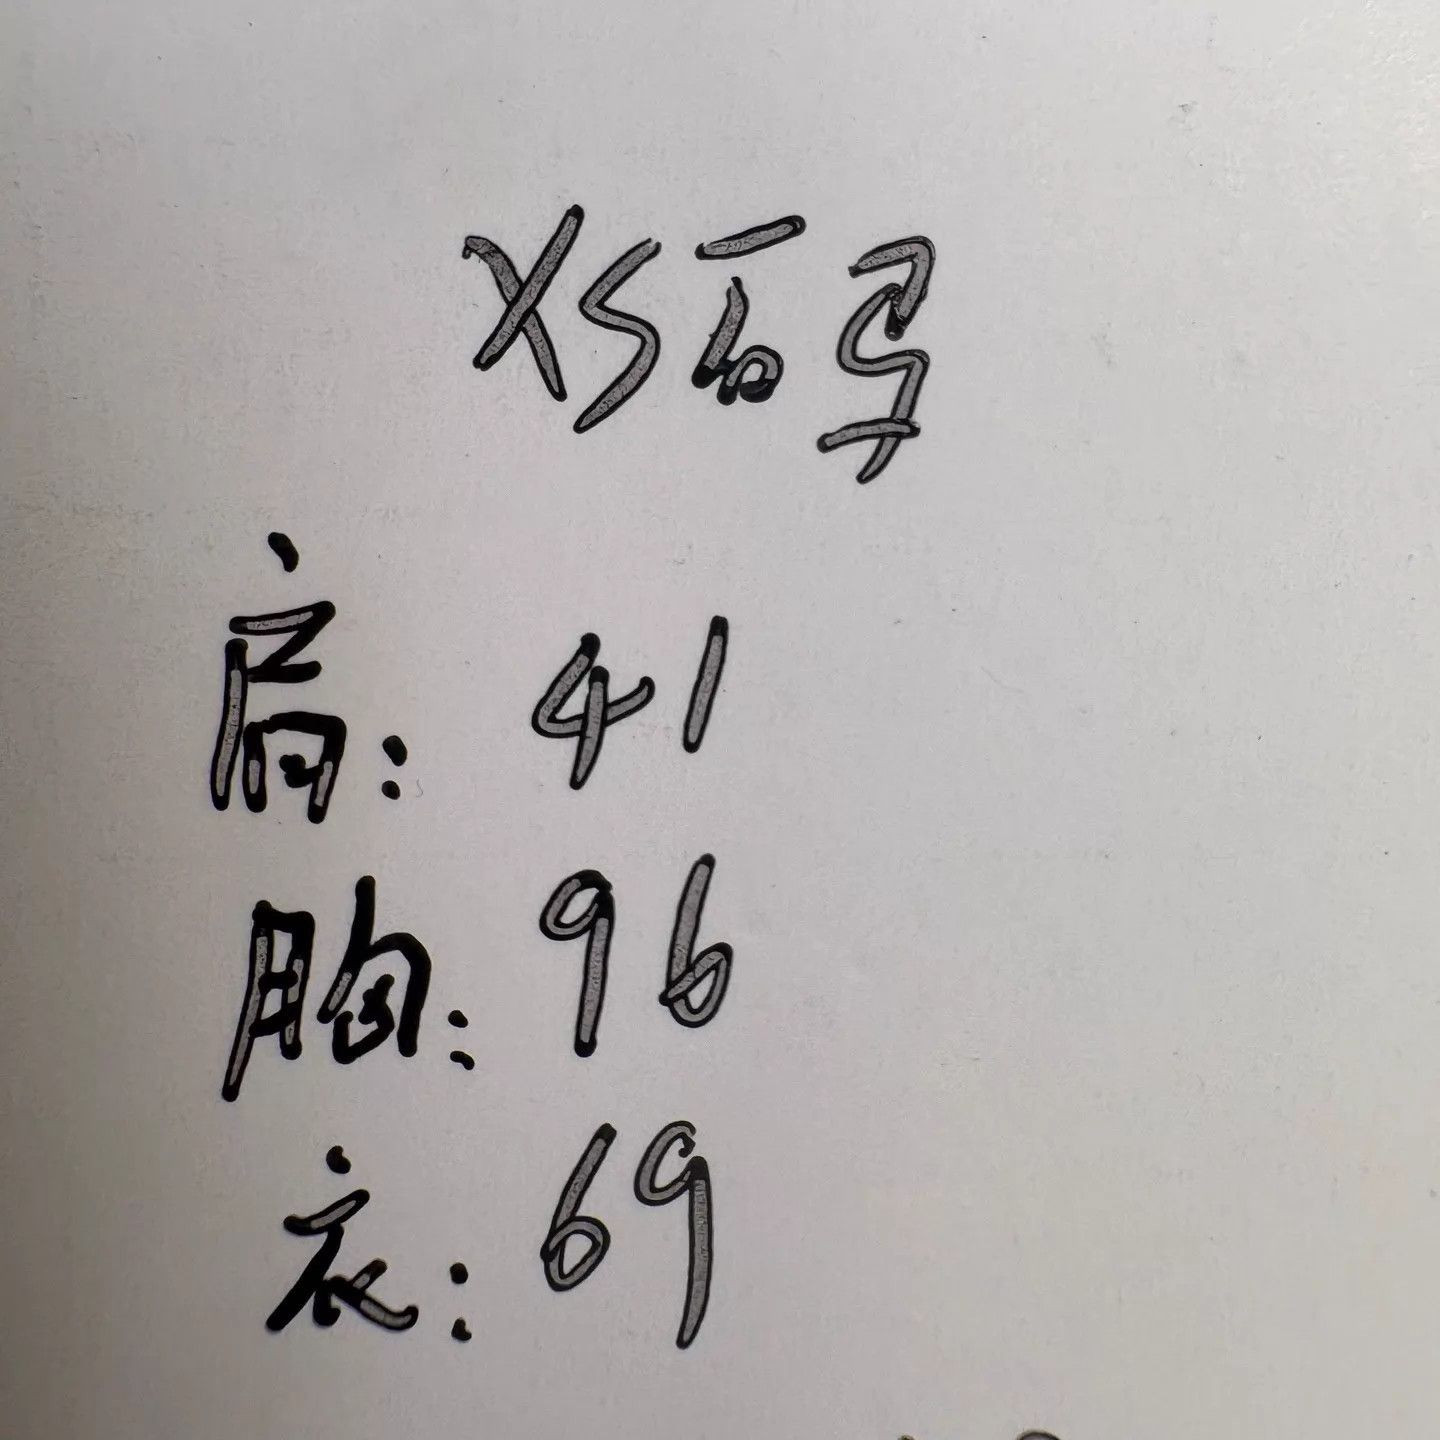 XS码
肩：41
胸：96
衣：69